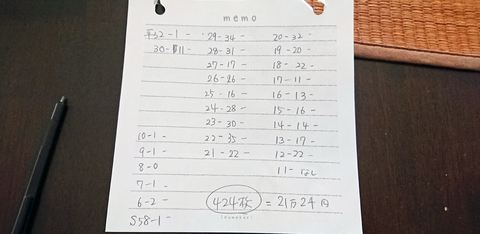 memo
平32-1- 29-34- 20-32-
30-11- 28-31- 19-20-
27-17- 18-22-
26-26- 17-11-
25-16- 16-13-
24-28- 15-16-
23-30- 14-14-
10-1- 22-35- 13-17-
9-1- 21-22- 12-22-
8-0 11-なし
7-1-
6-2- 424枚 = 21万2千円
S58-1-